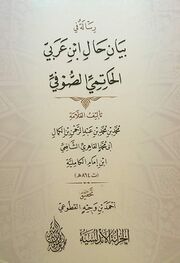 رسالة في
بيان حال ابن عربي
الحاتمي الصوفي
تأليف العلامة
محمد بن محمد بن عبد الرحمن بن الكمال
أبي محمد القاهري الشافعي
ابن إمام الكاملية
(ت ٨٦٤ هـ)
تحقيق
أحمد بن وجيه القطوعي
الخزانة الأندلسية